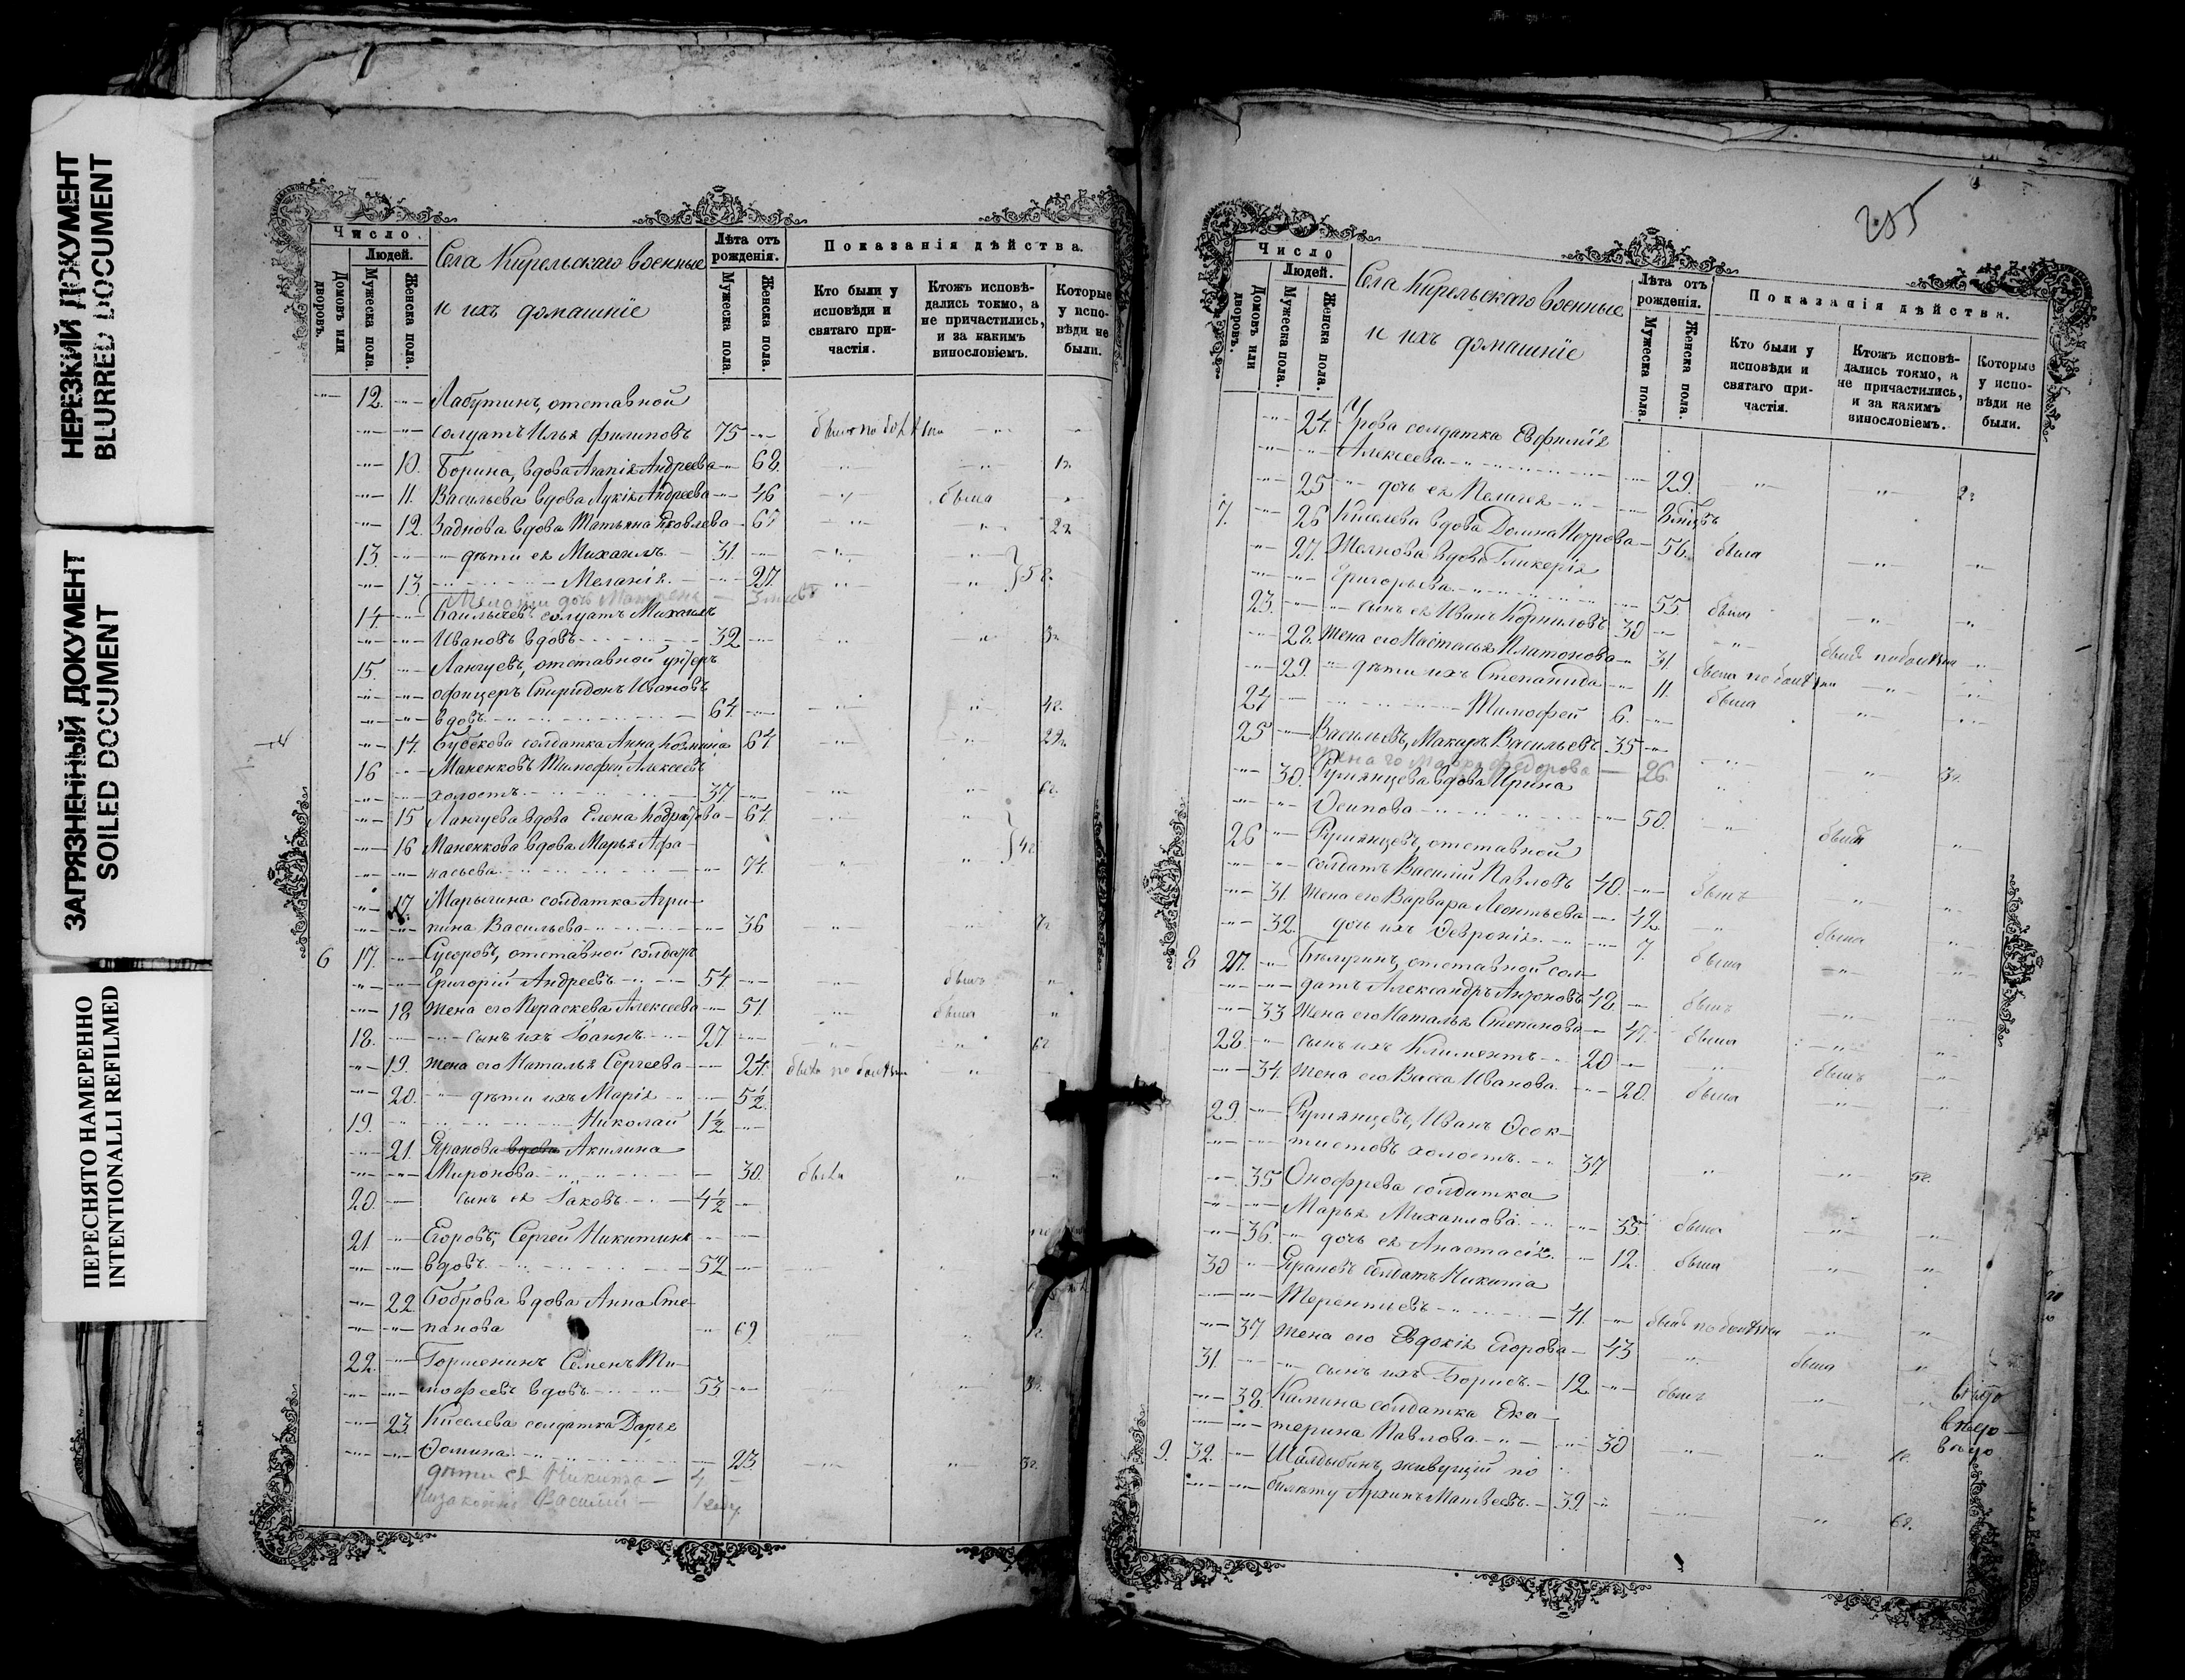 НЕРЕЗКИЙ ДОКУМЕНТ
BLURRED DOCUMENT
ЗАГРЯЗНЕННЫЙ ДОКУМЕНТ
SOILED DOCUMENT
ПЕРЕСНЯТО НАМЕРЕННО
INTENTIONALLI REFILMED
Число.
Людей.
Домовъ или дворовъ.
Мужеска пола.
Женска пола.
Села Кирельскаго военные
и ихъ домашніе
Лѣта отъ рожденія.
Мужеска пола.
Женска пола.
Показанія дѣйства.
Кто были у исповѣди и святаго причастія.
Ктожъ исповѣдались токмо, а не причастились, и за какимъ винословіемъ.
Которые у исповѣди не были.
12. Лабутинъ, отставной
солдатъ Илья Филиповъ 75
10. Борина, вдова Агапія Андреева 68
11. Васильева вдова Лукія Андреева 46 была
12. Заднова вдова Татьяна Яковлева 67 2г.
13. дѣти ея Михаилъ 31
13. Меланія 27. 5г.
Меланіи дочь Матрена
14. солдатъ Михаилъ
Ивановъ вдовъ 32 3г.
15. Лангуевъ, отставной унтеръ
офицеръ Спиридонъ Ивановъ
вдовъ 64 4г.
14. Бубекова солдатка Анна Козмина 64
16 Маненковъ Тимофей Алексеевъ
холостъ 37 6г.
15 Лангуева вдова Елена 64.
16 Маненкова вдова Марья Афа-
насьева 74. 4г
17 Марыгина солдатка Агри-
пина Васильева 36
6 17. Суворовъ, отставной солдатъ
Григорій Андреевъ 54. былъ
18 Жена его Параскева Алексеева 51 была
18. сынъ ихъ Іоаннъ 27 6г
19. Жена его Наталья Сергеева 24.
20. дѣти ихъ Марія 5½
19. Николай 1½
21. Еранова вдова Акилина
Миронова 30. была
20. сынъ ея Іаковъ 4½
21 Егоровъ, Сергей Никитинъ
вдовъ 52
22. Боброва вдова Анна Сте-
панова 69
22. Горшенинъ Семенъ Ти-
мофеевъ вдовъ 53 3г.
23. Киселева солдатка Дарья
Ѳомина 23 3г.
дѣти ея Никита 4
Василій
285
Число
Людей.
Домовъ или дворовъ.
Мужеска пола.
Женска пола.
Села Кирельскаго военные
и ихъ домашніе
Лѣта отъ рожденія.
Мужеска пола.
Женска пола.
Показанія дѣйства.
Кто были у исповѣди и святаго причастія.
Ктожъ исповѣдались токмо, а не причастились, и за какимъ винословіемъ.
Которые у исповѣди не были.
24. Урова солдатка Евфимія
Алексеева 29. 2г
25 дочь ея Пелагея
7. 26 Киселева вдова Домна Петрова 56. была
27. Желнова вдова Гликерія
Григорьева 55 была
23. сынъ ея Иванъ Корниловъ 30
28. Жена его Настасья Платонова 31
29. дѣти ихъ Степанида 11. была
24 Тимофей 6.
25 Васильевъ, Макаръ Васильевъ 35 3г.
Жена его Мавра Федорова 26
30. Румянцева вдова Ирина
Осипова 50.
26 Румянцевъ, отставной
солдатъ Василій Павловъ 40. былъ
31. Жена его Варвара Леонтьева 42
32. дочь ихъ Ѳевронія 7. была
8 27. Балугинъ, отставной сол-
датъ Александръ Антоновъ 48 былъ
33 Жена его Наталья Степанова 47. была
28. сынъ ихъ Климентъ 20 былъ
34. Жена его Васса Иванова 20. была
29. Румянцевъ, Иванъ Ѳеок-
тистовъ холостъ 37 5г.
35 Онофрева солдатка
Марья Михаилова 35. была
36. дочь ея Анастасія 12. была
30 Ерановъ солдатъ Никита
Терентьевъ 41.
37 Жена его Евдокія Егорова 43 была
31. сынъ ихъ Борисъ 12 былъ
38. Камина солдатка Ека-
терина Павлова 30
9. 32. Шалдыбинъ, живущій по
билету Архипъ Матвеевъ 39 6г.